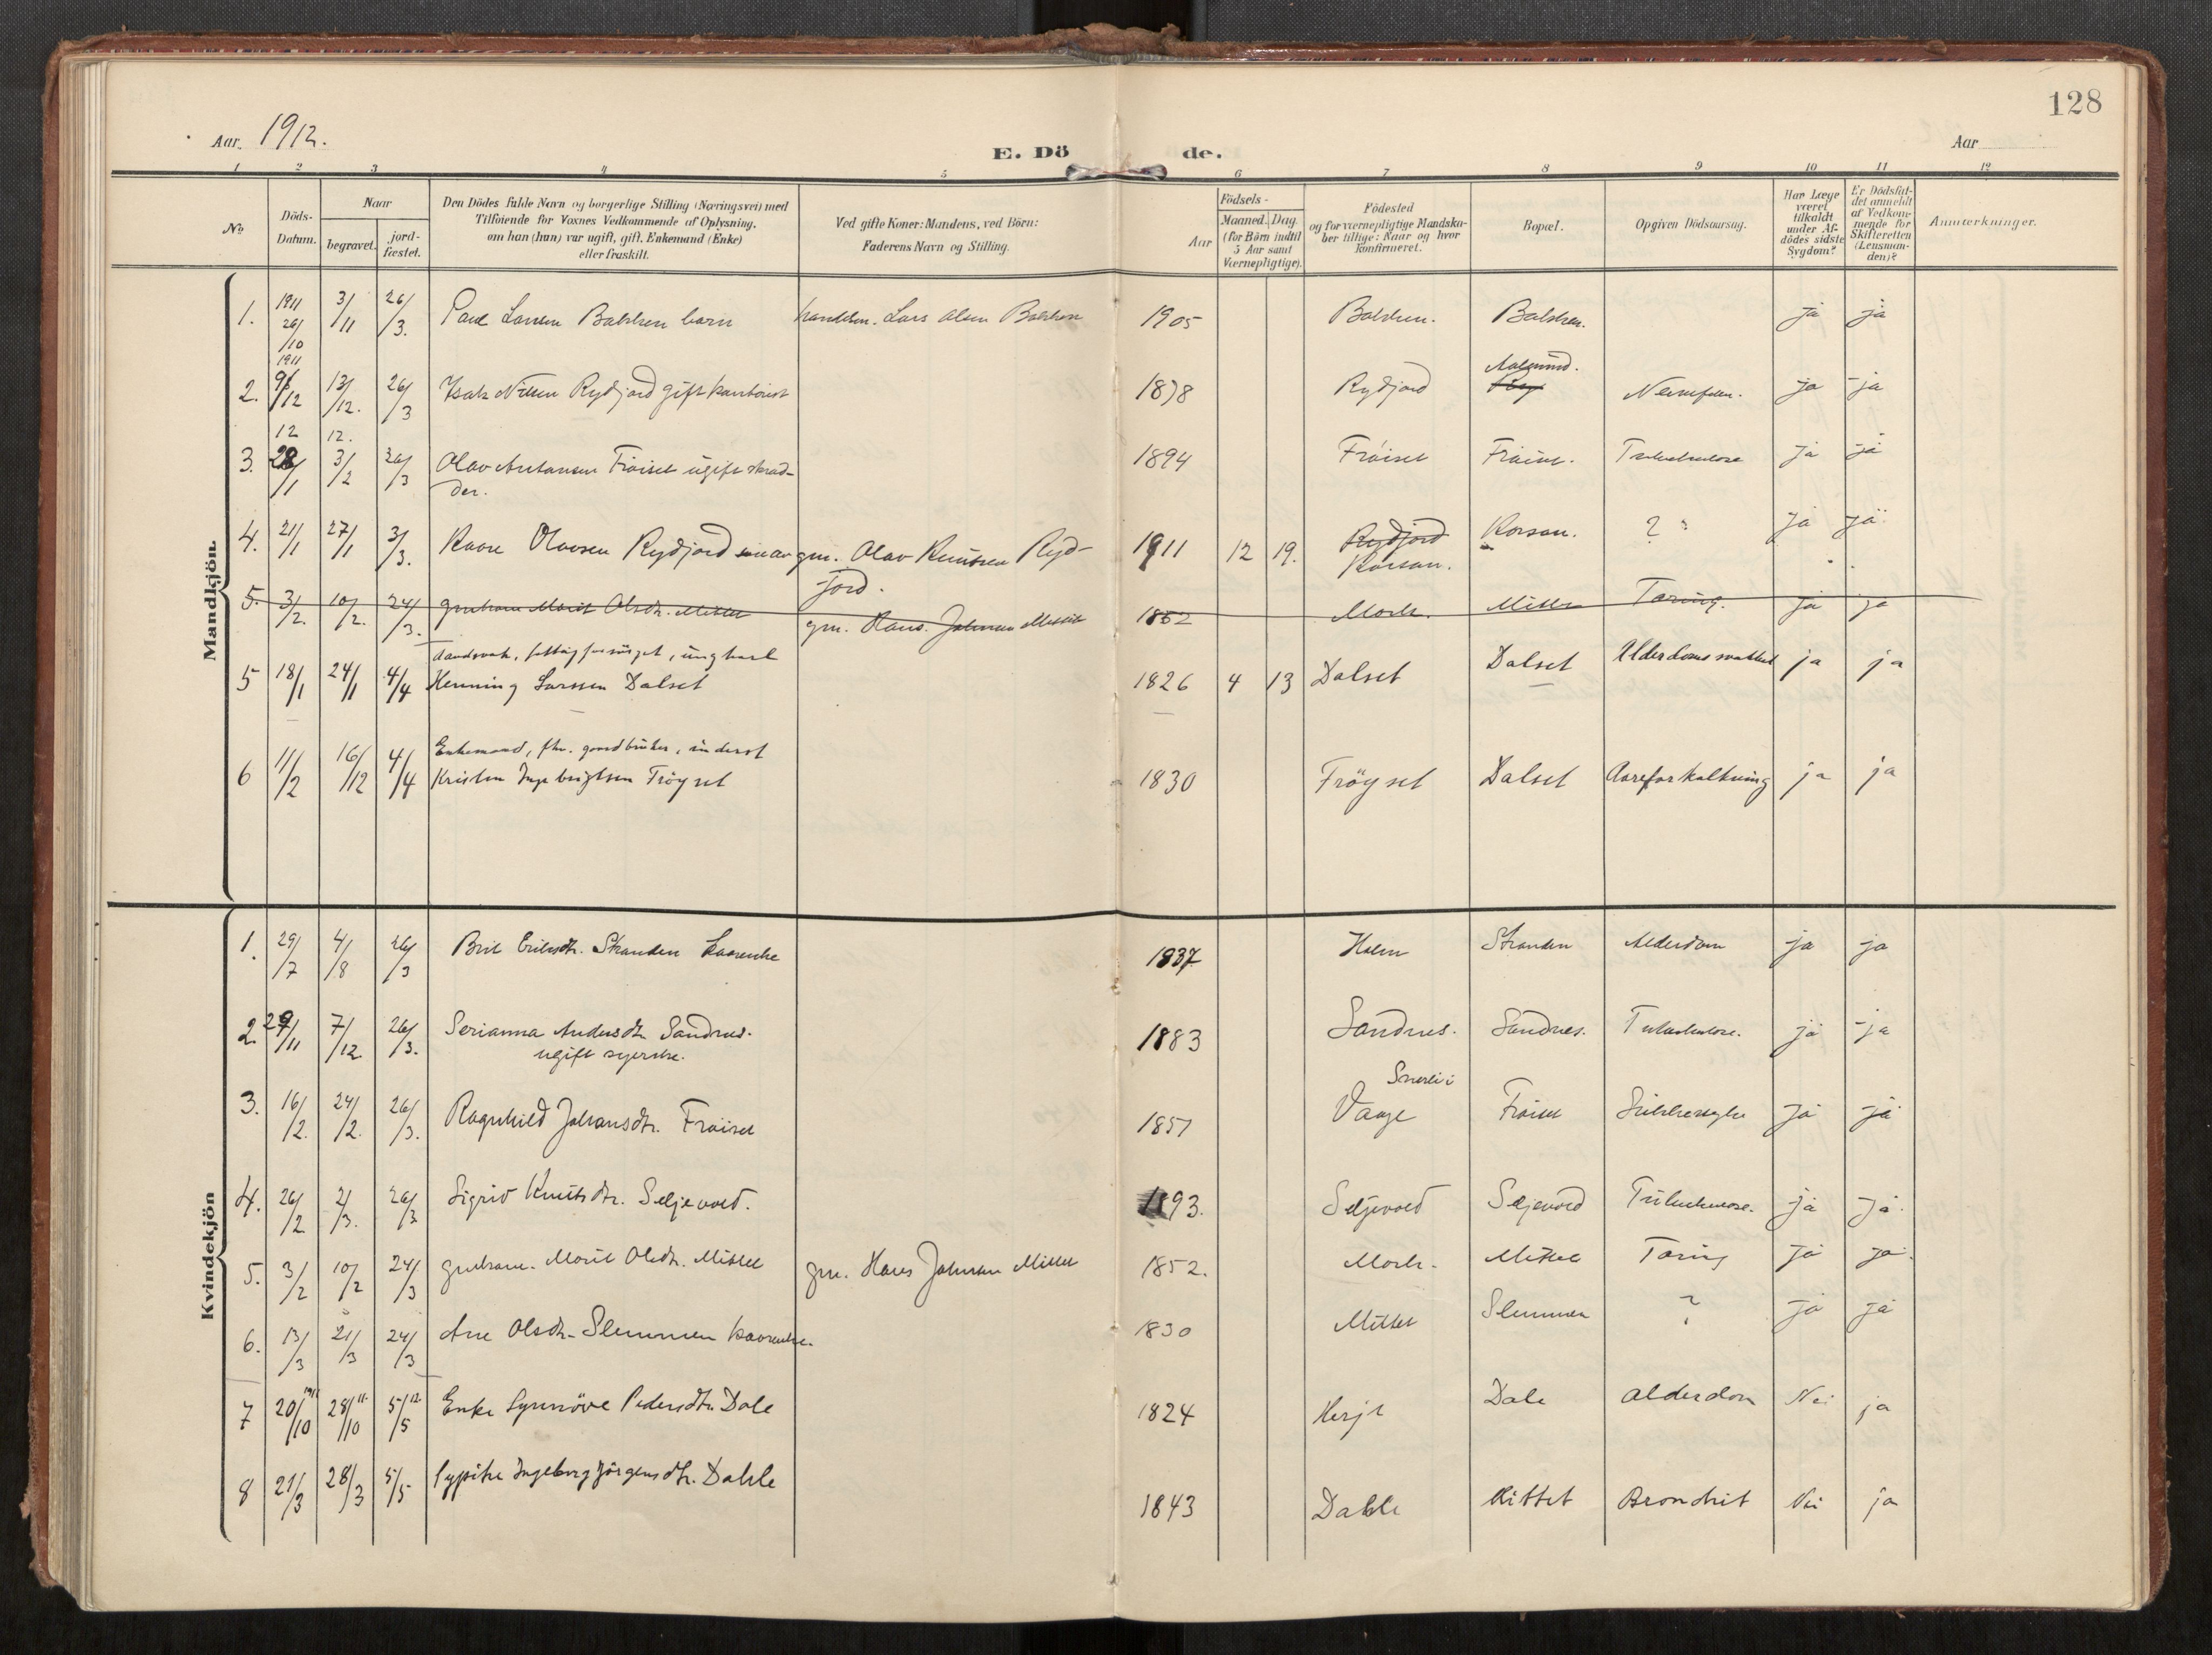 128
Aar 1912.
E. Dö de.
Aar
1 2 3 4 5 6 7 8 9 10 11 12
No
Döds-Datum.
Naar
begravet.
jord-fæstet.
Den Dödes fulde Navn og borgerlige Stilling (Næringsvei) med
Tilföiende for Voxnes Vedkommende af Oplysning.
om han (hun) var ugift, gift, Enkemand (Enke)
eller fraskilt.
Ved gifte Koner: Mandens, ved Börn:
Faderens Navn og Stilling.
Födsels-
Aar
Maaned. Dag.
(for Börn indtil
5 Aar samt
Værnepligtige).
Födested
og for værnepligtige Mandska-
ber tillige: Naar og hvor
konfirmeret.
Bopæl.
Opgiven Dödsaarsag.
Har Læge
været
tilkaldt
under Af-
dödes sidste
Sygdom?
Er Dödsfal-
det anmeldt
af Vedkom-
mende for
Skifteretten
(Lensman-
den)?
Anmærkninger.
Mandkjön.
1. 1911 26/10 3/11 26/3. Paul Larsen barn Lars Olsen 1905 ja ja
2. 1911 9/12 13/12. 26/3 Isak Nilsen Rydjord gift kontorist 1878 Rydjord Aalesund. ja ja
3. 12 28/1 12. 3/2 26/3 Olav Fröiset ugift skræd-
der. 1894 Fröiset Fröiset. Tuberkulose ja ja
4. 21/1 27/1 3/3. Kaare Olavsen Rydjord gm. Olav Knutsen Ryd-
jord. 1911 12 19. Rydjord Korsan. Korsan. ? ja ja
5. 3/2. 10/2. 24/3. Marit Olsdtr. Mittet gm. Hans Johnsen Mittet 1852 Mork. Mittet Tæring. ja ja
5 18/1 24/1 4/4 Tandsvak, fattigforsörget, ungkarl
Henning Larssen Dalset 1826 4 13 Dalset Dalset Alderdomssvakhet ja ja
6 11/2 16/12 4/4 Enkemand, fhv. gaardbruker, inderst
Kristen Ingebrigtsen Fröyset 1830 Fröyset Dalset Aareforkalkning ja ja
Kvindekjön
1. 29/7 4/8 26/3 Brit Eriksdtr. Stranden kaarenke 1837 Holm Stranden Alderdom ja ja
2. 29/11 7/12. 26/3. Serianna Andersdtr. Sandnes.
ugift syerske. 1883 Sandnes. Sandnes. Tuberkulose. ja ja
3. 16/2. 24/2. 26/3. Ragnhild Johansdtr. Fröiset 1851 Snerli i
Vaage Fröiset Sukkersyke ja ja
4. 26/2 2/3. 26/3 Sigrid Knutsdtr. Seljevold. 1893. Seljevold Seljevold Tuberkulose. ja ja
5. 3/2 10/2 24/3 Marit Olsdtr. Mittet gm. Hans Johnsen Mittet 1852. Mork. Mittet Tæring ja ja
6. 13/3 21/3 24/3 Ane Olsdtr. Slemmen kaarenke. 1830 Mittet Slemmen ? ja ja
7 20/10 1911 28/10 11. 5/5 12. Enke Synnöve Pedersdtr. Dale 1824 Herje Dale Alderdom Nei ja
8 21/3 28/3 5/5 Ingeborg Jörgensdtr. Dahle 1843 Dahle Mittet Bronchit Nei ja